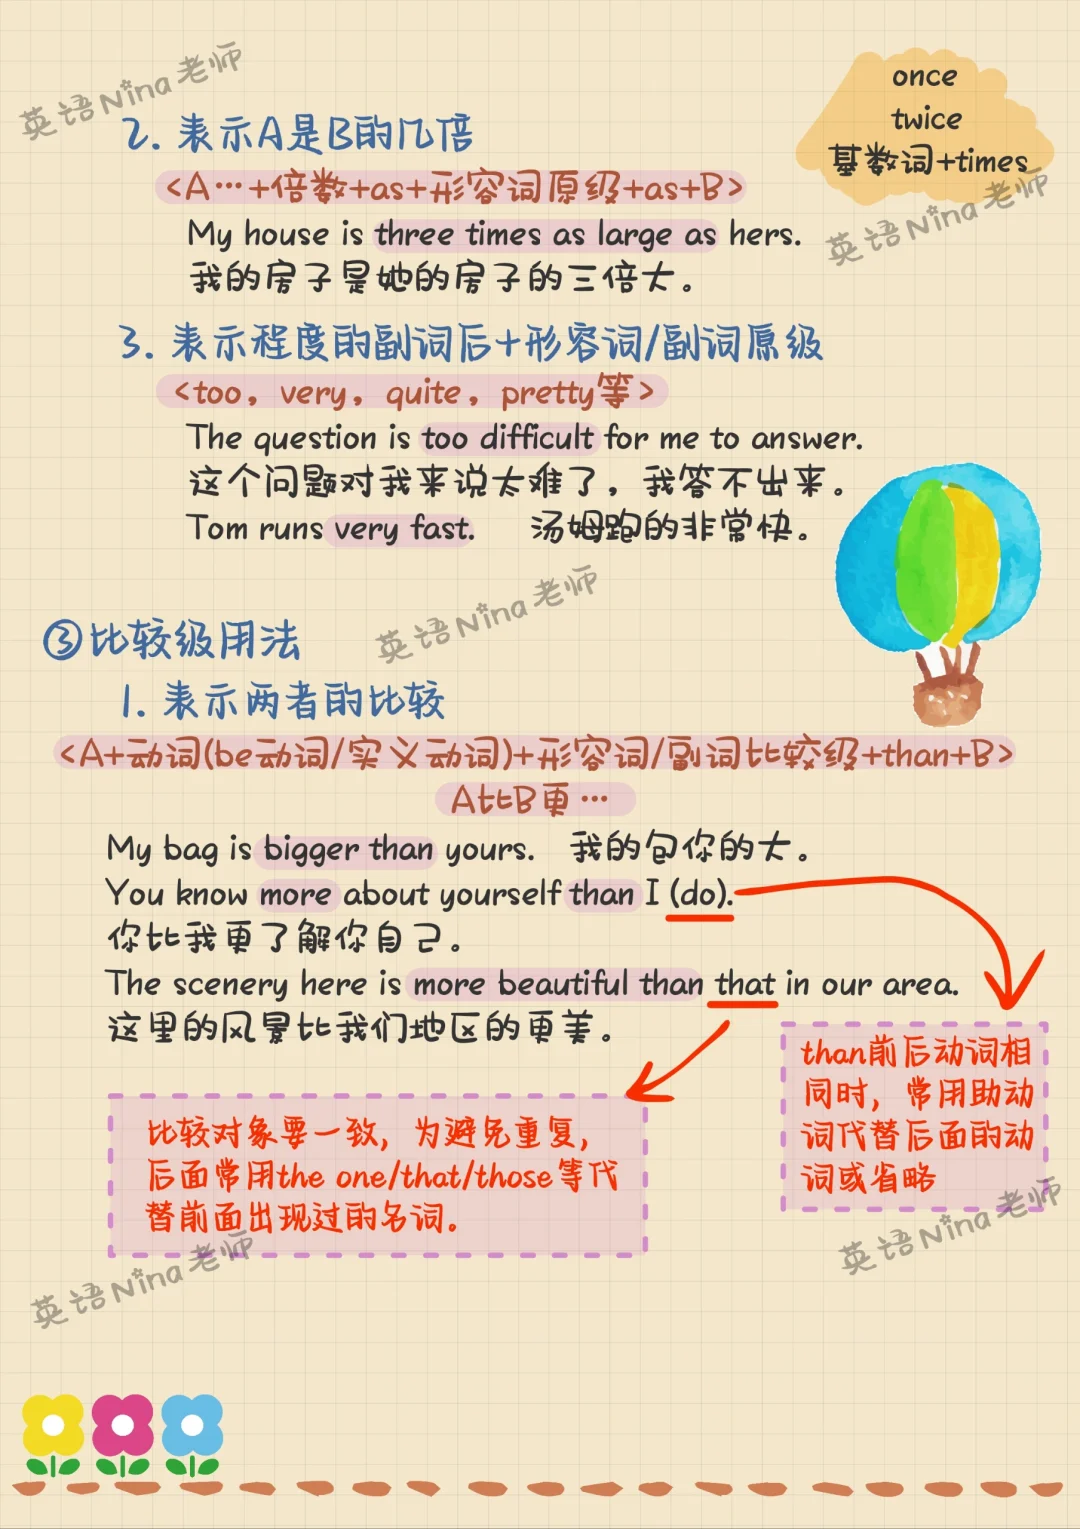 英语Nina老师
once
twice
基数词+times
2. 表示A是B的几倍
<A…+倍数+as+形容词原级+as+B>
英语Nina老师
My house is three times as large as hers.
我的房子是她的房子的三倍大。
3. 表示程度的副词后+形容词/副词原级
<too，very，quite，pretty等>
The question is too difficult for me to answer.
这个问题对我来说太难了，我答不出来。
Tom runs very fast. 汤姆跑的非常快。
英语Nina老师
③比较级用法
1. 表示两者的比较
<A+动词(be动词/实义动词)+形容词/副词比较级+than+B>
A比B更…
My bag is bigger than yours. 我的包你的大。
You know more about yourself than I (do).
你比我更了解你自己。
The scenery here is more beautiful than that in our area.
这里的风景比我们地区的更美。
than前后动词相
同时，常用助动
词代替后面的动
词或省略
比较对象要一致，为避免重复，
后面常用the one/that/those等代
替前面出现过的名词。
英语Nina老师
英语Nina老师